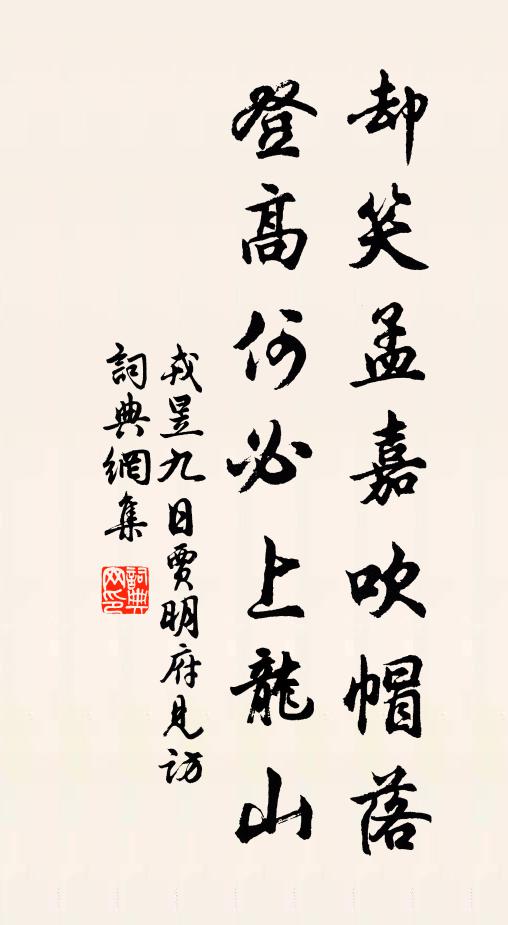 却笑孟嘉吹帽落
登高何必上龍山
戎昱九日賈明府見訪
詞典網集
詞典網印